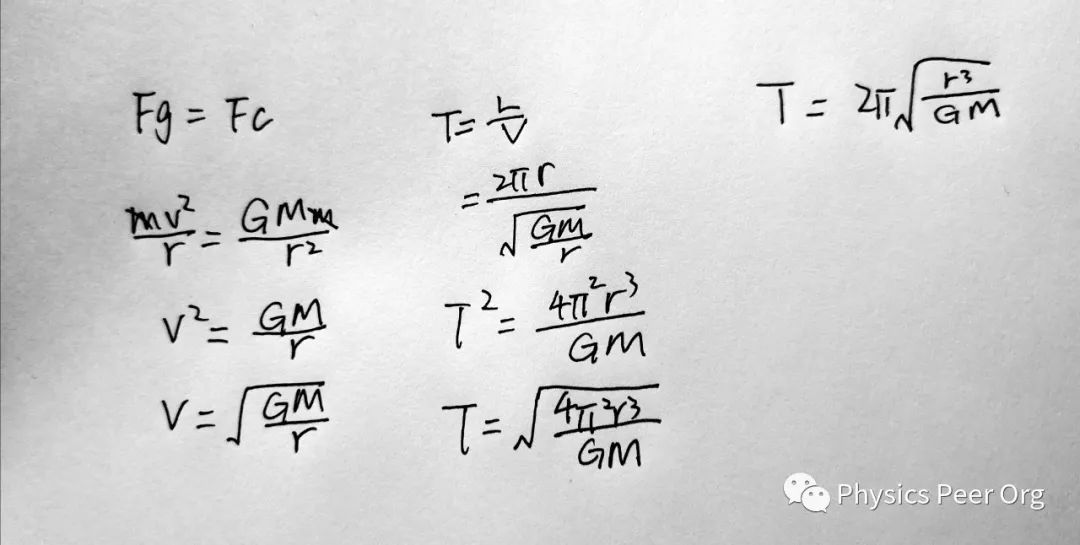 Fg = Fc
mv²/r = GMm/r²
V² = GM/r
V = √(GM/r)
T = L/V
= 2πr/√(GM/r)
T² = 4π²r³/GM
T = √(4π²r³/GM)
T = 2π√(r³/GM)
Physics Peer Org